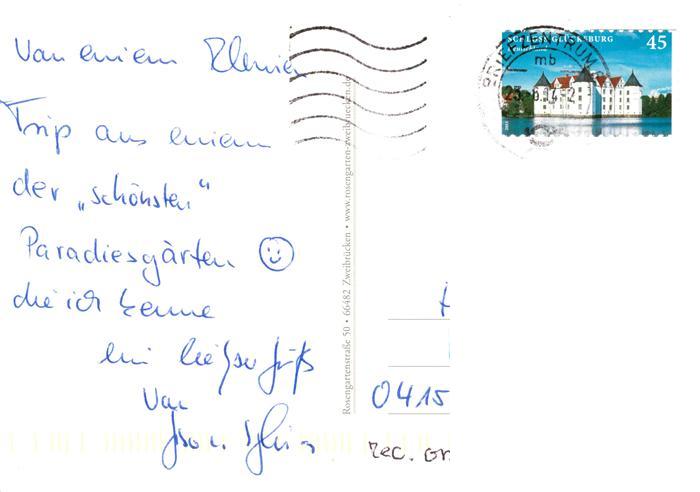 Von einem kleinen
Trip aus einem
der „schönsten“
Paradiesgärten
die ich kenne
ein lieber Gruß
Von
Rosengartenstraße 50 • 66482 Zweibrücken • www.rosengarten-zweibruecken.de
SCHLOSS GLÜCKSBURG 45
Deutschland
BRIEFZENTRUM
mb
0415
rec. on